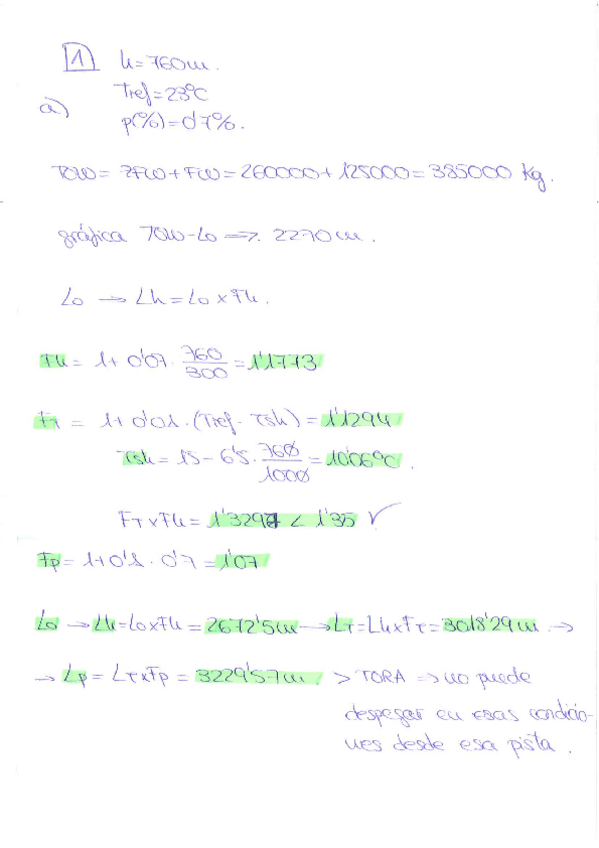 1 h=760m.
Tref=23ºC
a)
p(%)=0'7%.
TOW= ZFW+FW=260000+125000=385000 Kg.
gráfica TOW-Lo => 2270m.
Lo → Lh=Lo×Fh.
Fh= 1+0'07·760/300=1'1773
Ft = 1+0'01·(Tref-Tsh)=1'1294
Tsh=15-6'5·760/1000=10'06ºC.
FT×Fh=1'3297<1'35 ✓
Fp=1+0'1·0'7=1'07
Lo →Lh=Lo×Fh=2672'5m→LT=Lh×FT=3018'29m.→
→ Lp=LT×Fp=3229'57m. >TORA => no puede
despegar en esas condicio-
nes desde esa pista.